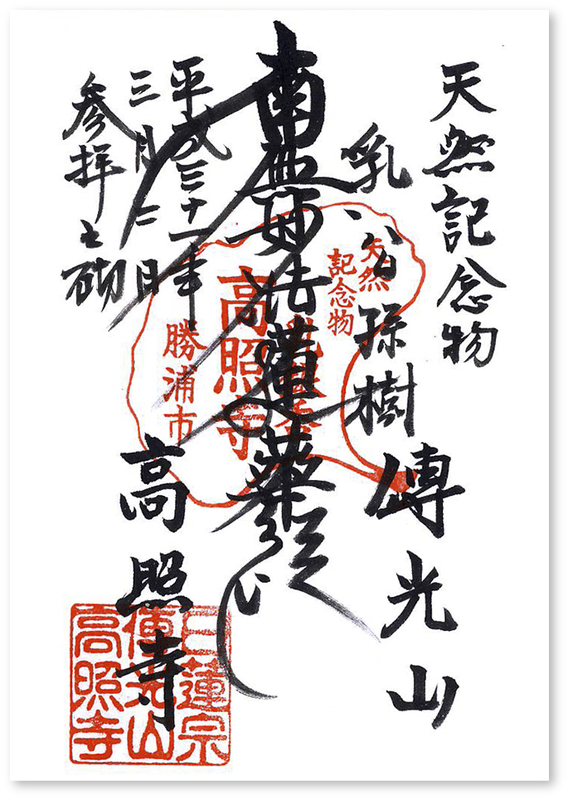 天然記念物
傳光山
乳公孫樹
南無妙法蓮華経
平成三十一年
三月二日
参拝之砌
高照寺
天然
記念物
高照寺
勝浦市
日蓮宗
傳光山
高照寺